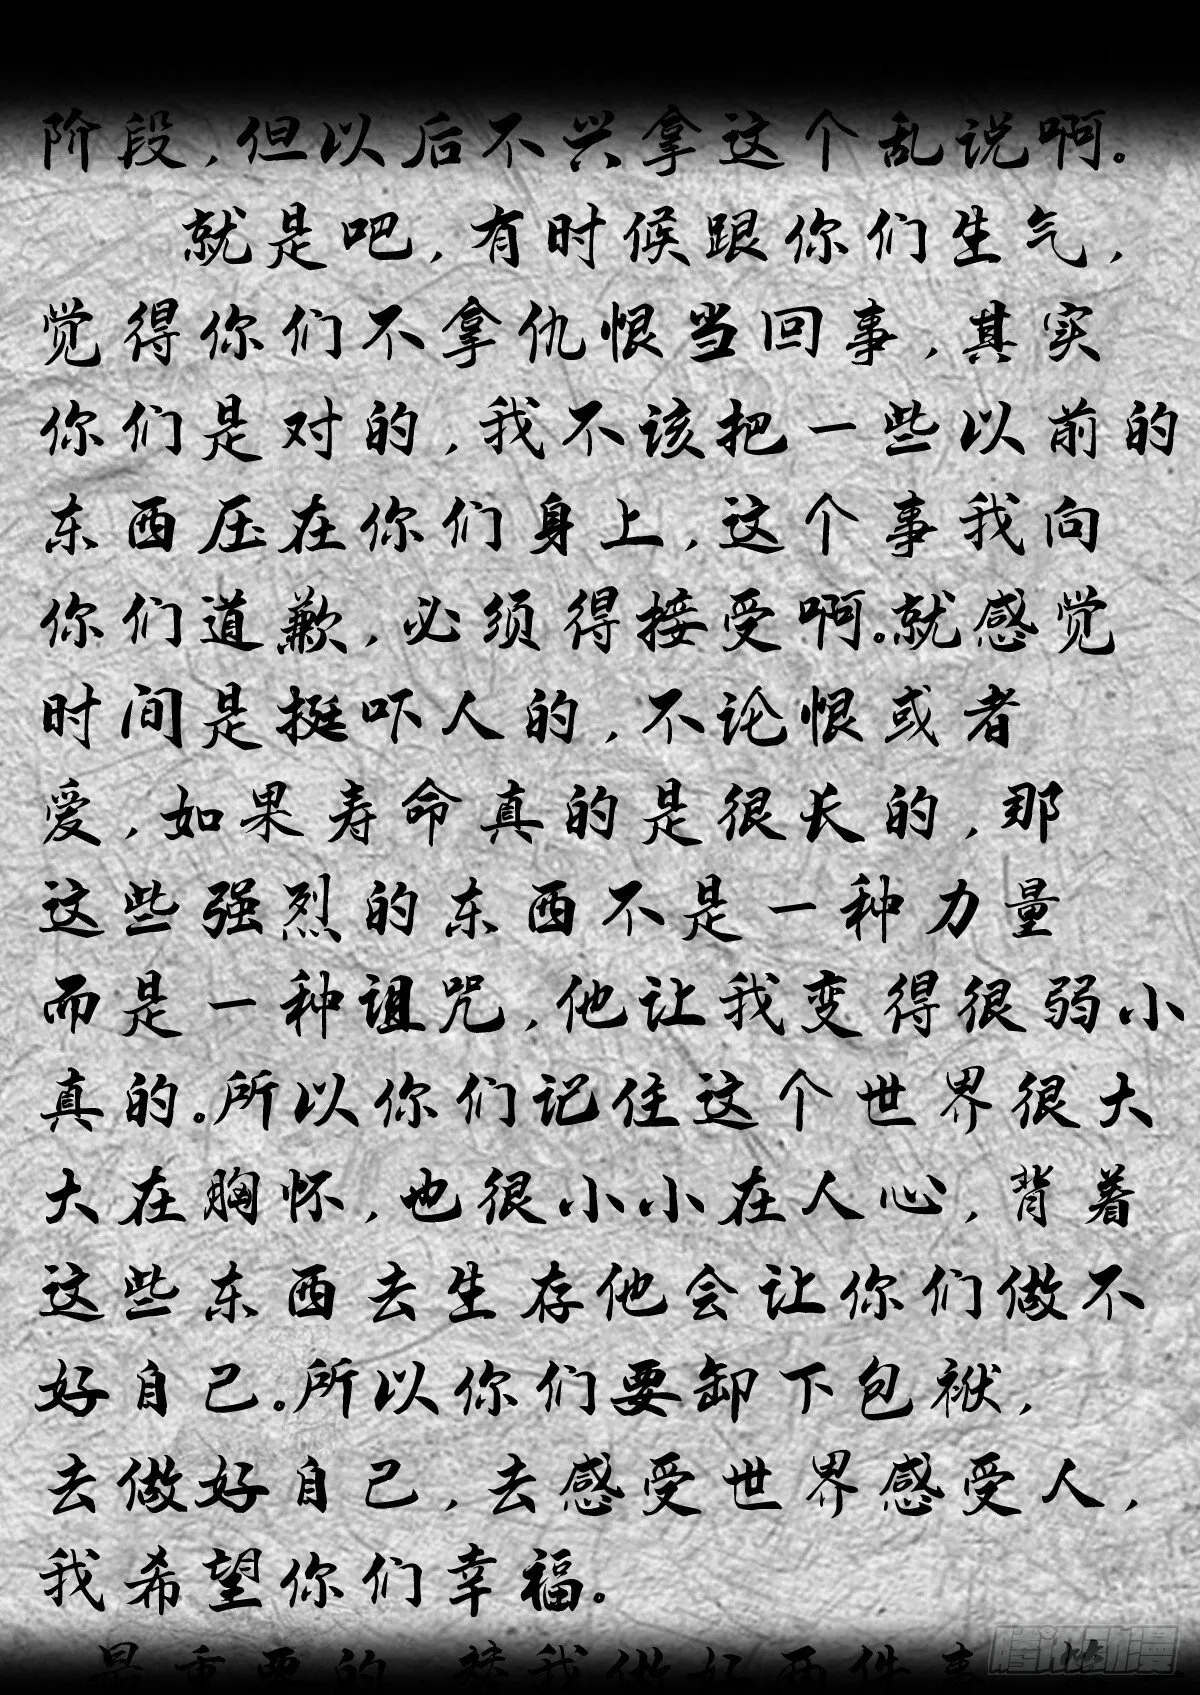 阶段,但以后不兴拿这个乱说啊。
就是吧,有时候跟你们生气,
觉得你们不拿仇恨当回事,其实
你们是对的,我不该把一些以前的
东西压在你们身上,这个事我向
你们道歉,必须得接受啊。就感觉
时间是挺吓人的,不论恨或者
爱,如果寿命真的是很长的,那
这些强烈的东西不是一种力量
而是一种诅咒,他让我变得很弱小
真的。所以你们记住这个世界很大
大在胸怀,也很小小在人心,背着
这些东西去生存他会让你们做不
好自己。所以你们要卸下包袱,
去做好自己,去感受世界感受人,
我希望你们幸福。
最重要的,替我做好两件事,
腾讯动漫